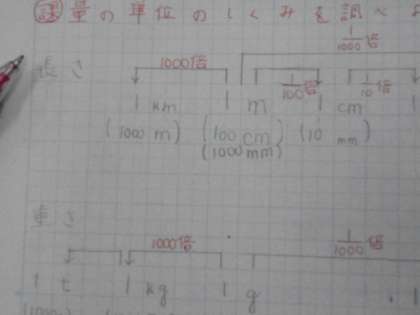 課 量の単位のしくみを調べよ
1/1000倍
長さ 1000倍 1/100倍 1/10倍
1km 1m 1cm
(1000m) (100cm) (10mm)
(1000mm)
重さ
1000倍 1/1000倍
1t 1kg 1g